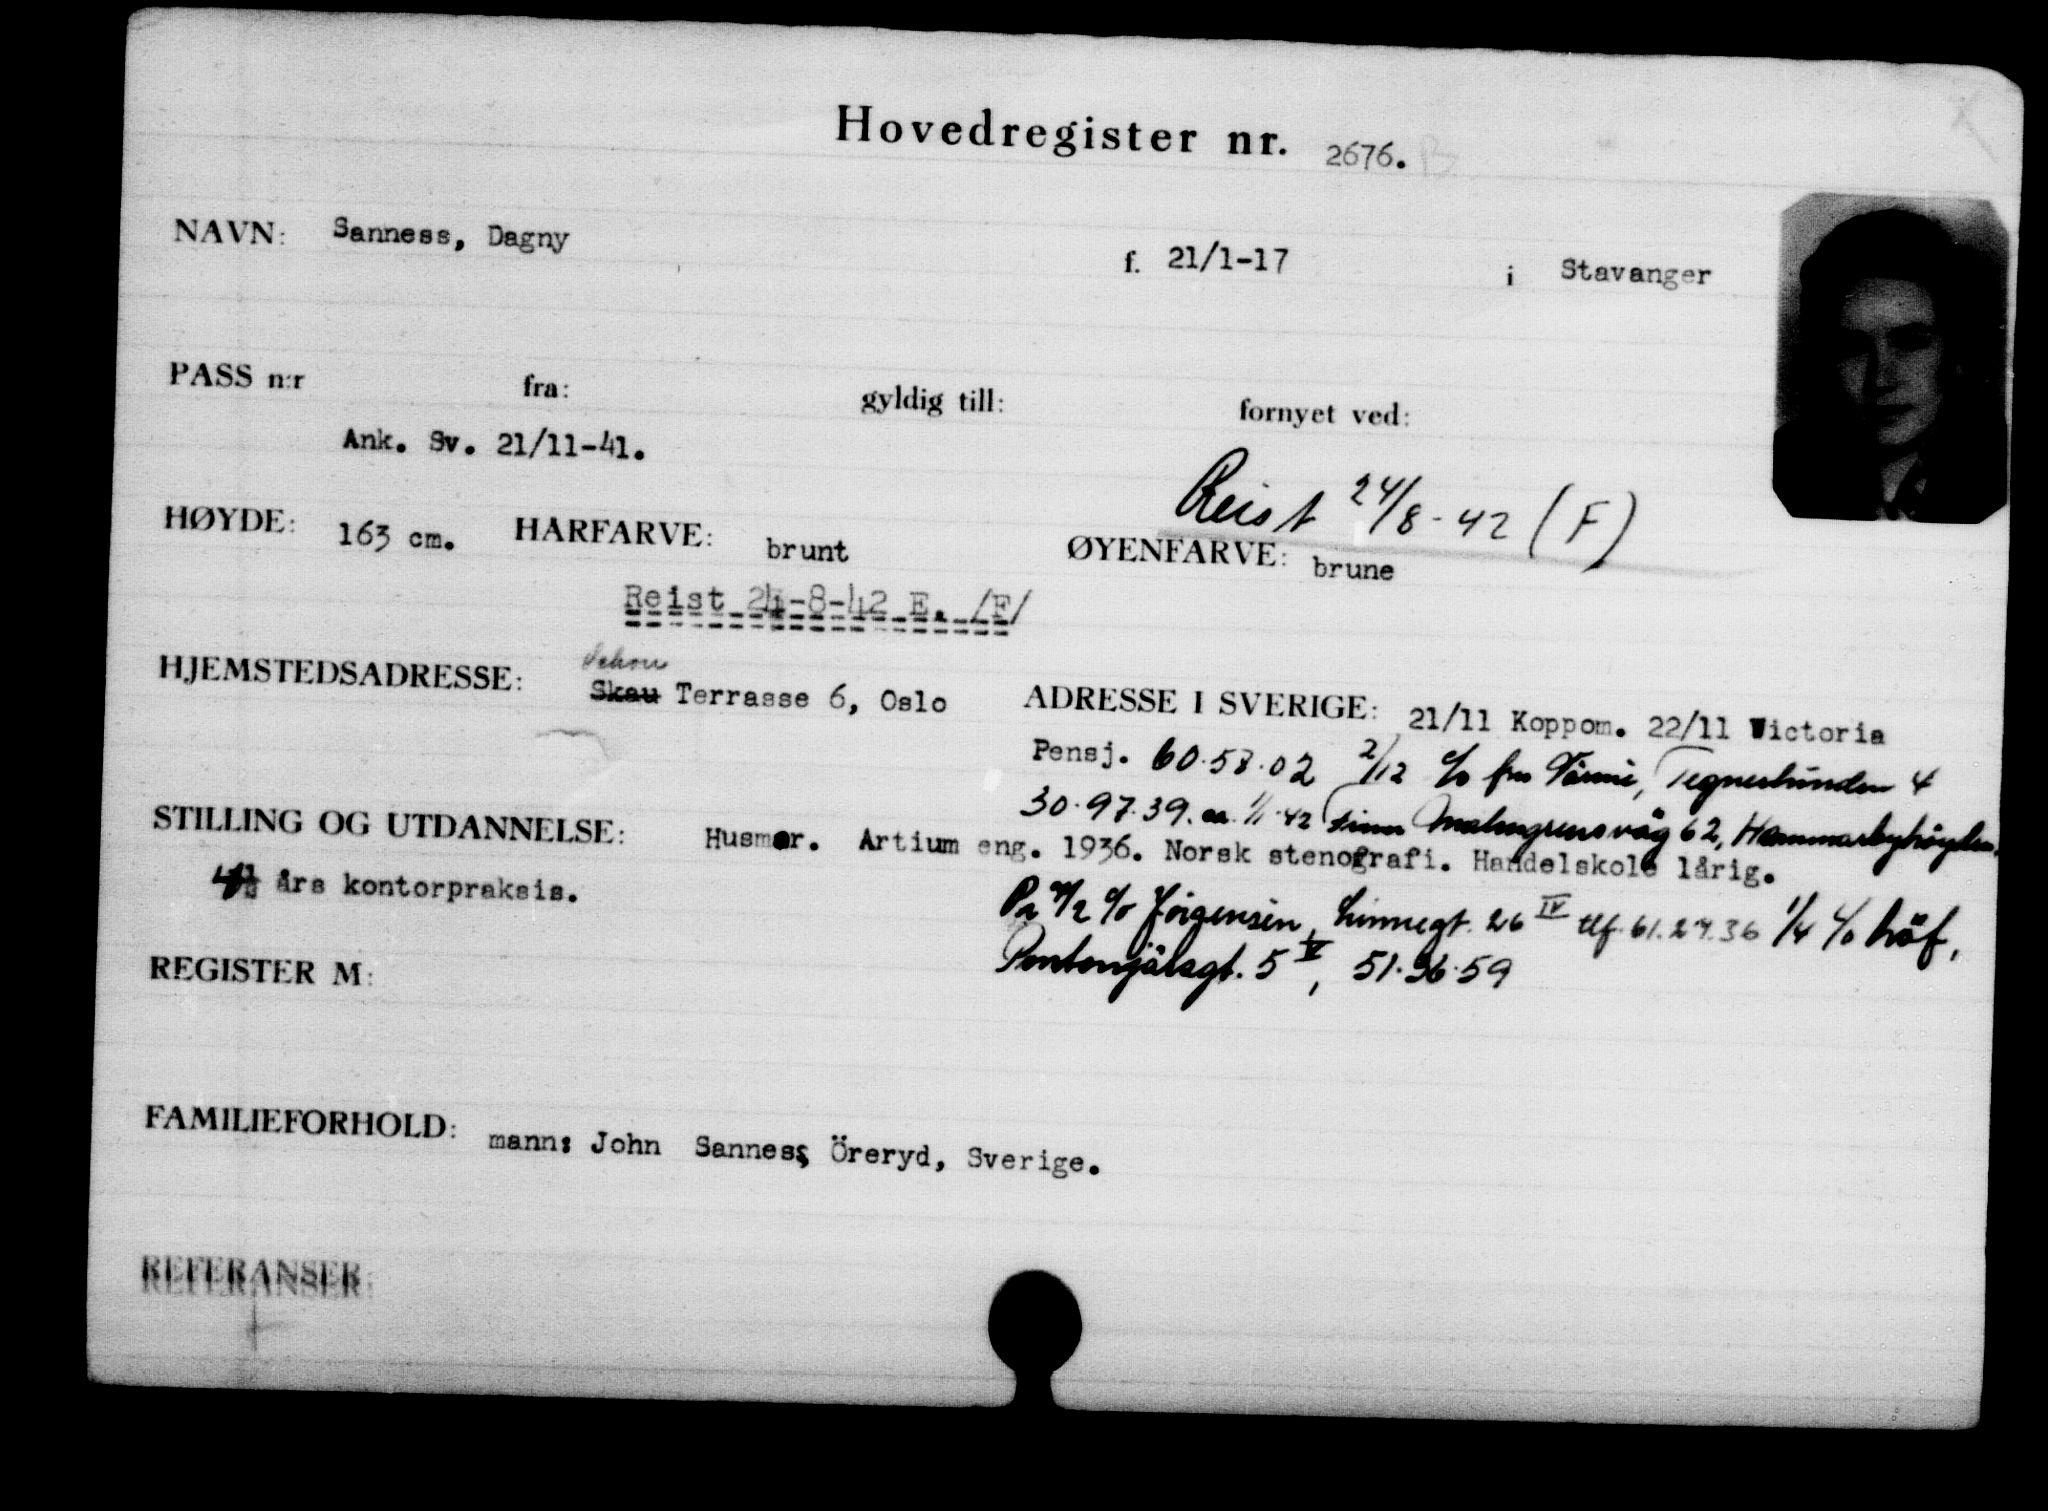 Hovedregister nr. 2676. B
NAVN: Sanness, Dagny f. 21/1-17 i Stavanger
PASS n:r fra: gyldig till: fornyet ved:
Ank. Sv. 21/11-41.
Reist 24/8-42 (F)
HØYDE: 163 cm. HÅRFARVE: brunt ØYENFARVE: brune
Reist 24-8-42 E. /F/
Schou
HJEMSTEDSADRESSE: Skau Terrasse 6, Oslo ADRESSE I SVERIGE: 21/11 Koppom. 22/11 Victoria
Pensj. 60.58.02 2/12 c/o fru Tegnerlunden 4
30.97.39. 1/1-42 Finn Malmgrensväg 62, Hammarbyhöjden.
STILLING OG UTDANNELSE: Husmor. Artium eng. 1936. Norsk stenografi. Handelskole 1årig.
års kontorpraksis.
c/o Jörgensen, Linnegt. 26 IV tlf. 61.27.36 1/4 c/o Löf,
Pontonjärsgt. 5 V, 51.36.59
REGISTER M:
FAMILIEFORHOLD: mann: John Sanness, Öreryd, Sverige.
REFERANSER: